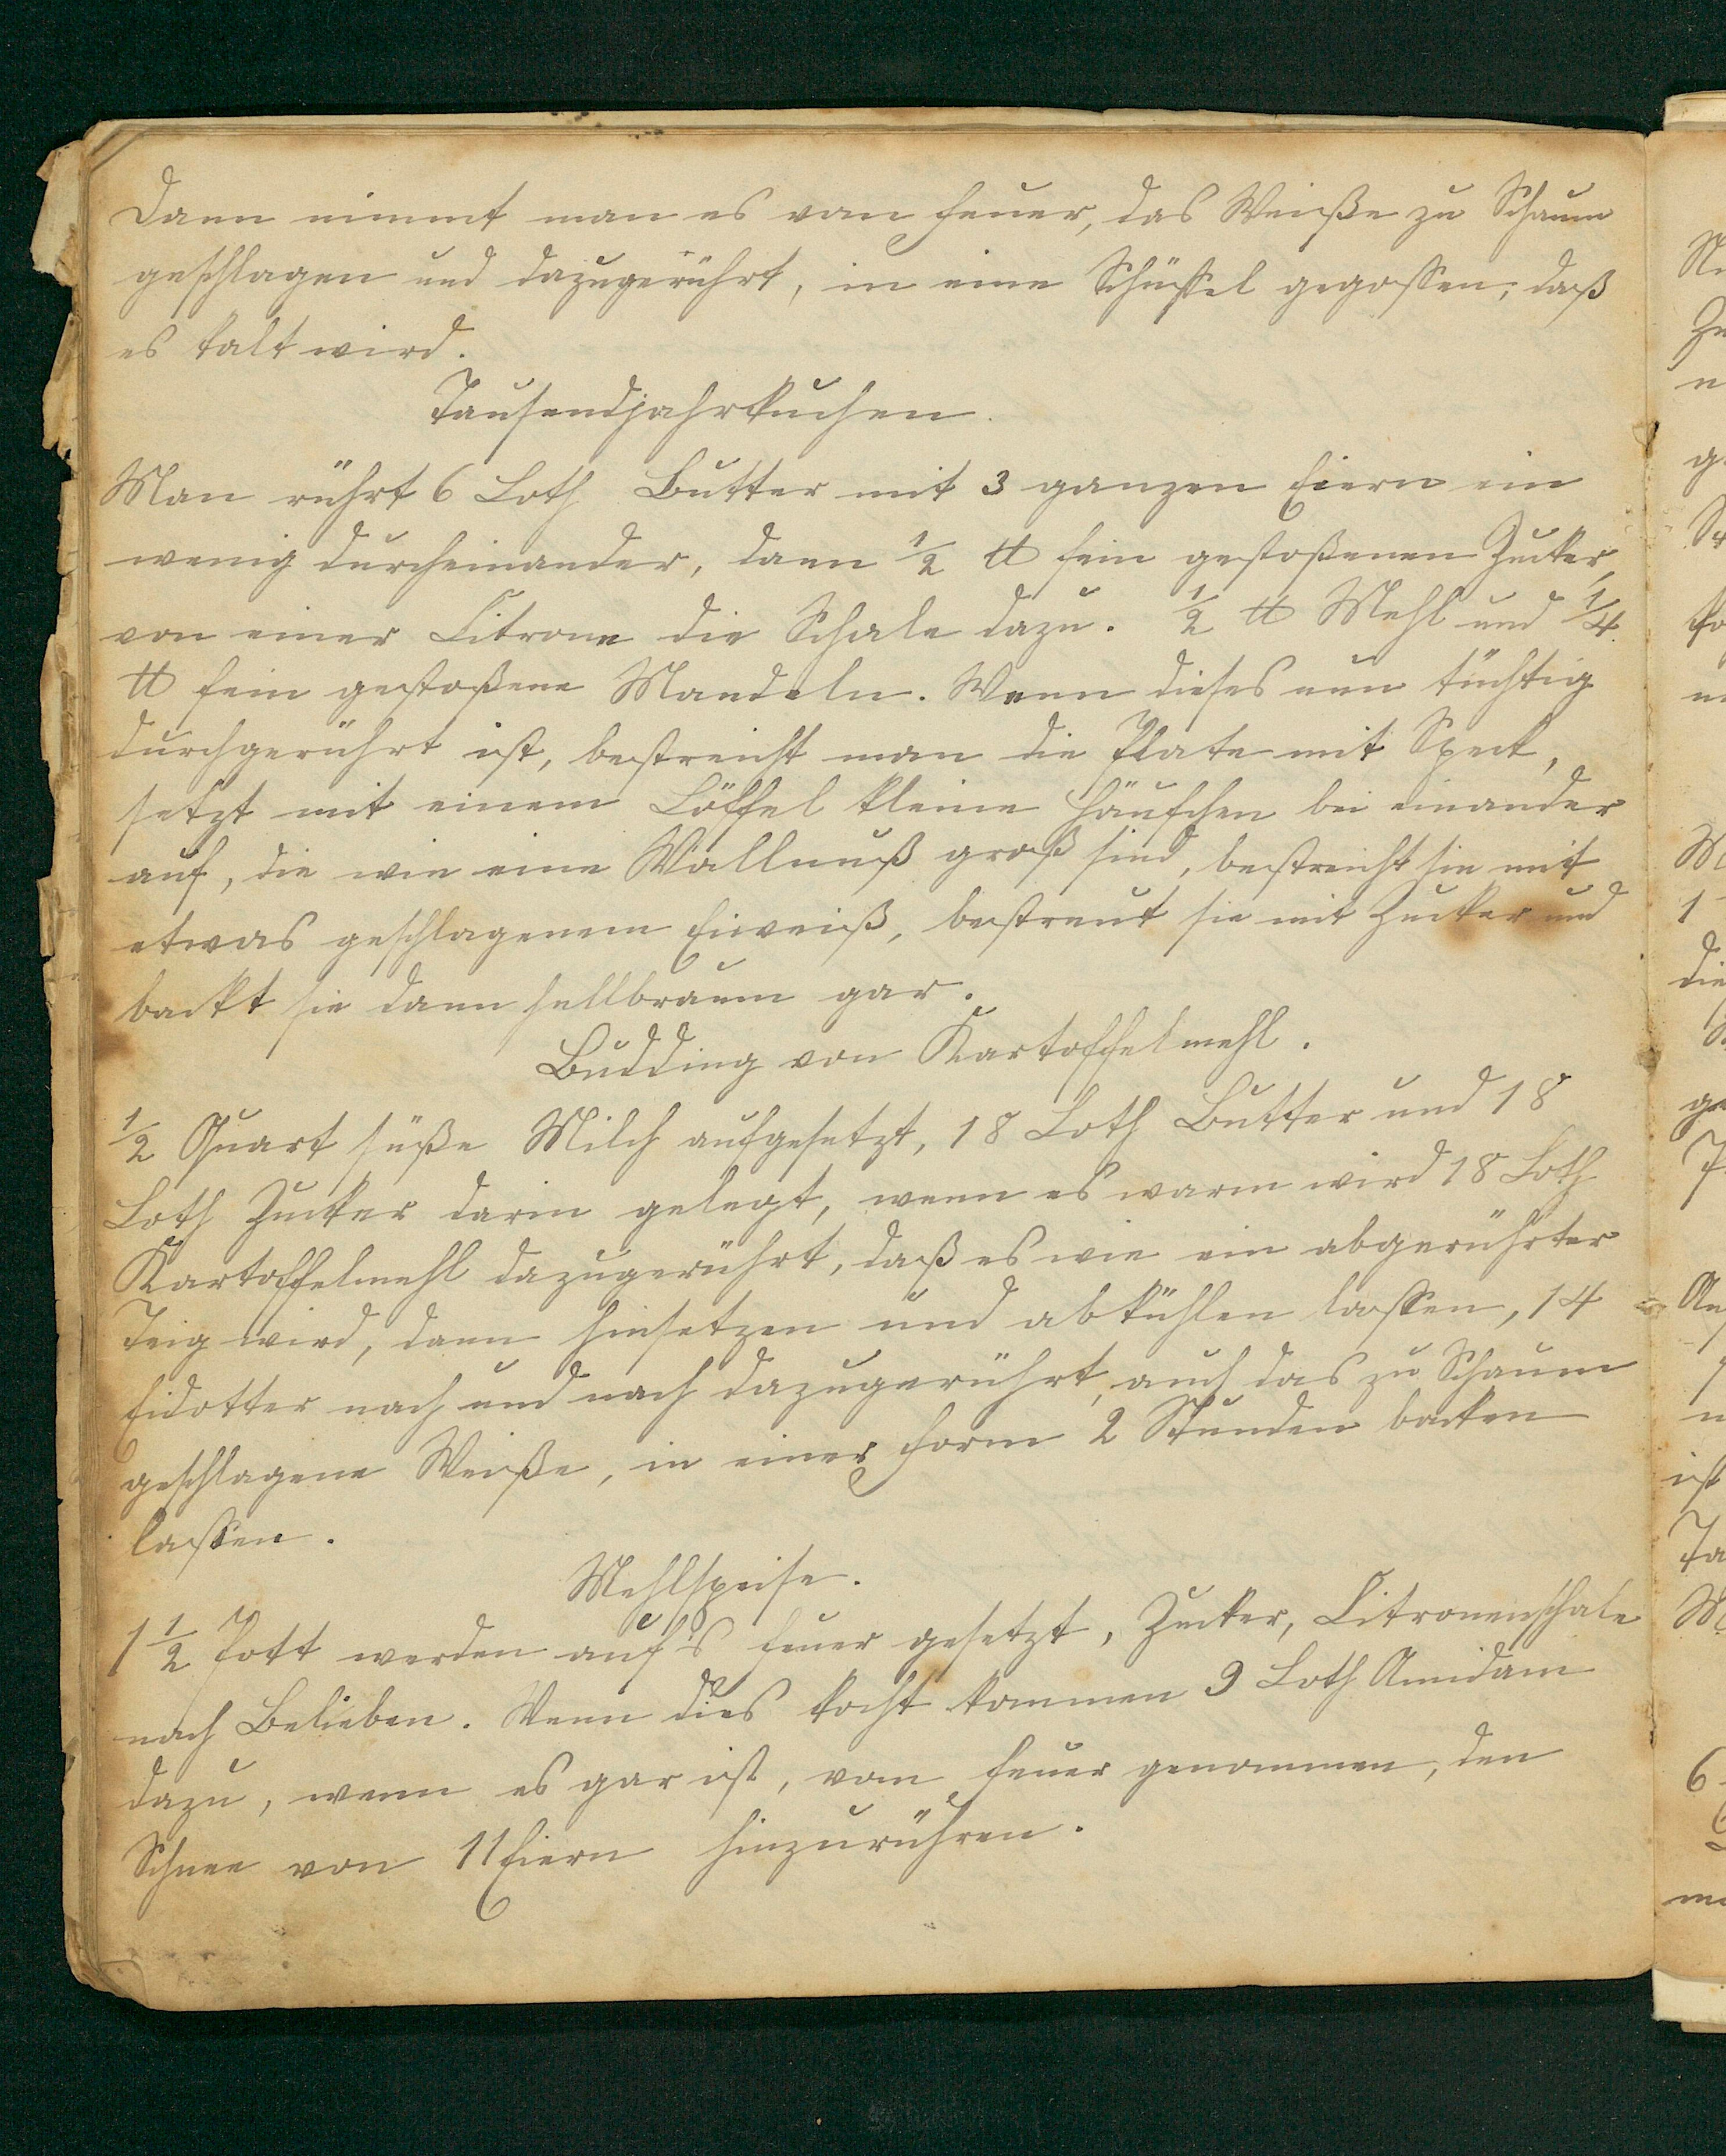 Dann nimmt man es vom Feuer, das Weiße zu Schaum
geschlagen und dazugerührt, in eine Schüssel gegossen, daß
es kalt wird.
Tausendjahrkuchen.
Man rührt 6 Loth Butter mit 3 ganzen Eiern ein
wenig durcheinander, dann 1/2 ℔ fein gestoßenen Zucker,
von einer Citrone die Schale dazu. 1/2 ℔ Mehl und 1/4
℔ fein gestoßene Mandeln. Wenn dieses nun tüchtig
durchgerührt ist, bestreicht man die Plate mit Speck,
setzt mit einem Löffel kleine Häufchen bei einander
auf, die wie eine Wallnuß groß sind, bestreicht sie mit
etwas geschlagenem Eiweiß, bestreut sie mit Zucker und
backt sie dann hellbraun gar.
Budding von Kartoffelmehl.
1/2 Quart süße Milch aufgesetzt, 18 Loth Butter und 18
Loth Zucker darin gelegt, wenn es warm wird 18 Loth
Kartoffelmehl dazugerührt, daß es wie ein abgerührter
Teig wird, dann hinsetzen und abkühlen lassen, 14
Eidotter nach und nach dazugerührt, auch das zu Schaum
geschlagene Weiße, in einer Form 2 Stunden backen
lassen.
Mehlspeise.
1 1/2 Pott werden auf's Feuer gesetzt, Zucker, Citronenschale
nach Belieben. Wenn dies kocht kommen 9 Loth Amidam
dazu, wenn es gar ist, vom Feuer genommen, den
Schnee von 11 Eiern hinzurühren.